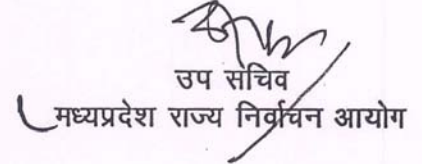 उप सचिव
मध्यप्रदेश राज्य निर्वाचन आयोग